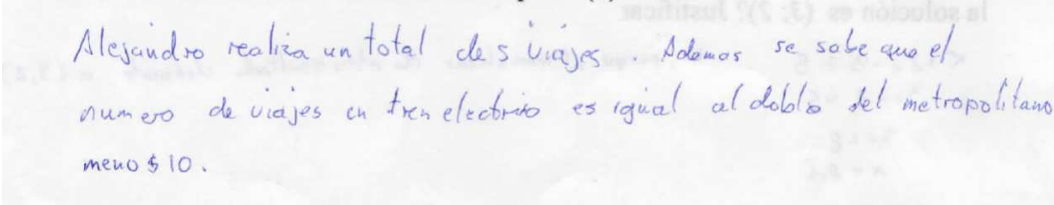 Alejandro realiza un total de 5 viajes. Ademas se sabe que el
numero de viajes en tren electrico es igual al doble del metropolitano
meno $ 10.